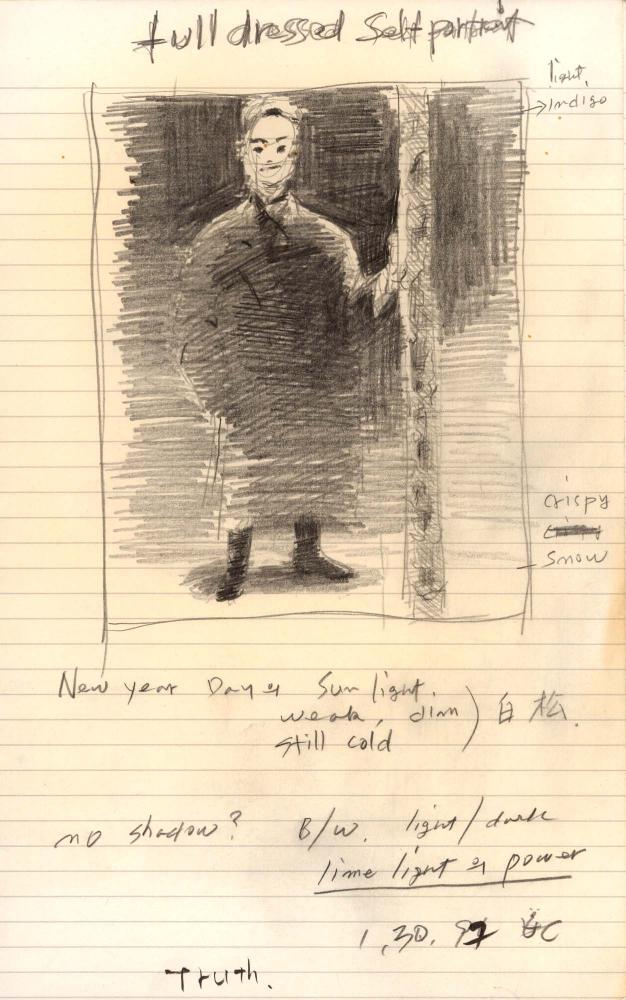 full dressed Self portrait
light
indigo
crispy
snow
New year Day의 Sun light.
weak, dim) 白松.
still cold
no shadow? B/W. light/dark
lime light의 power
1,30.97
Truth.